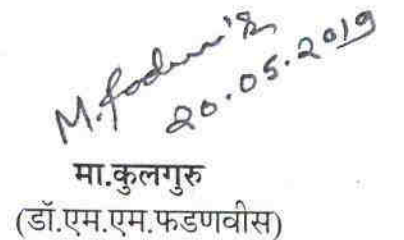 M. Fadnavis
20.05.2019
मा.कुलगुरु
(डॉ.एम.एम.फडणवीस)